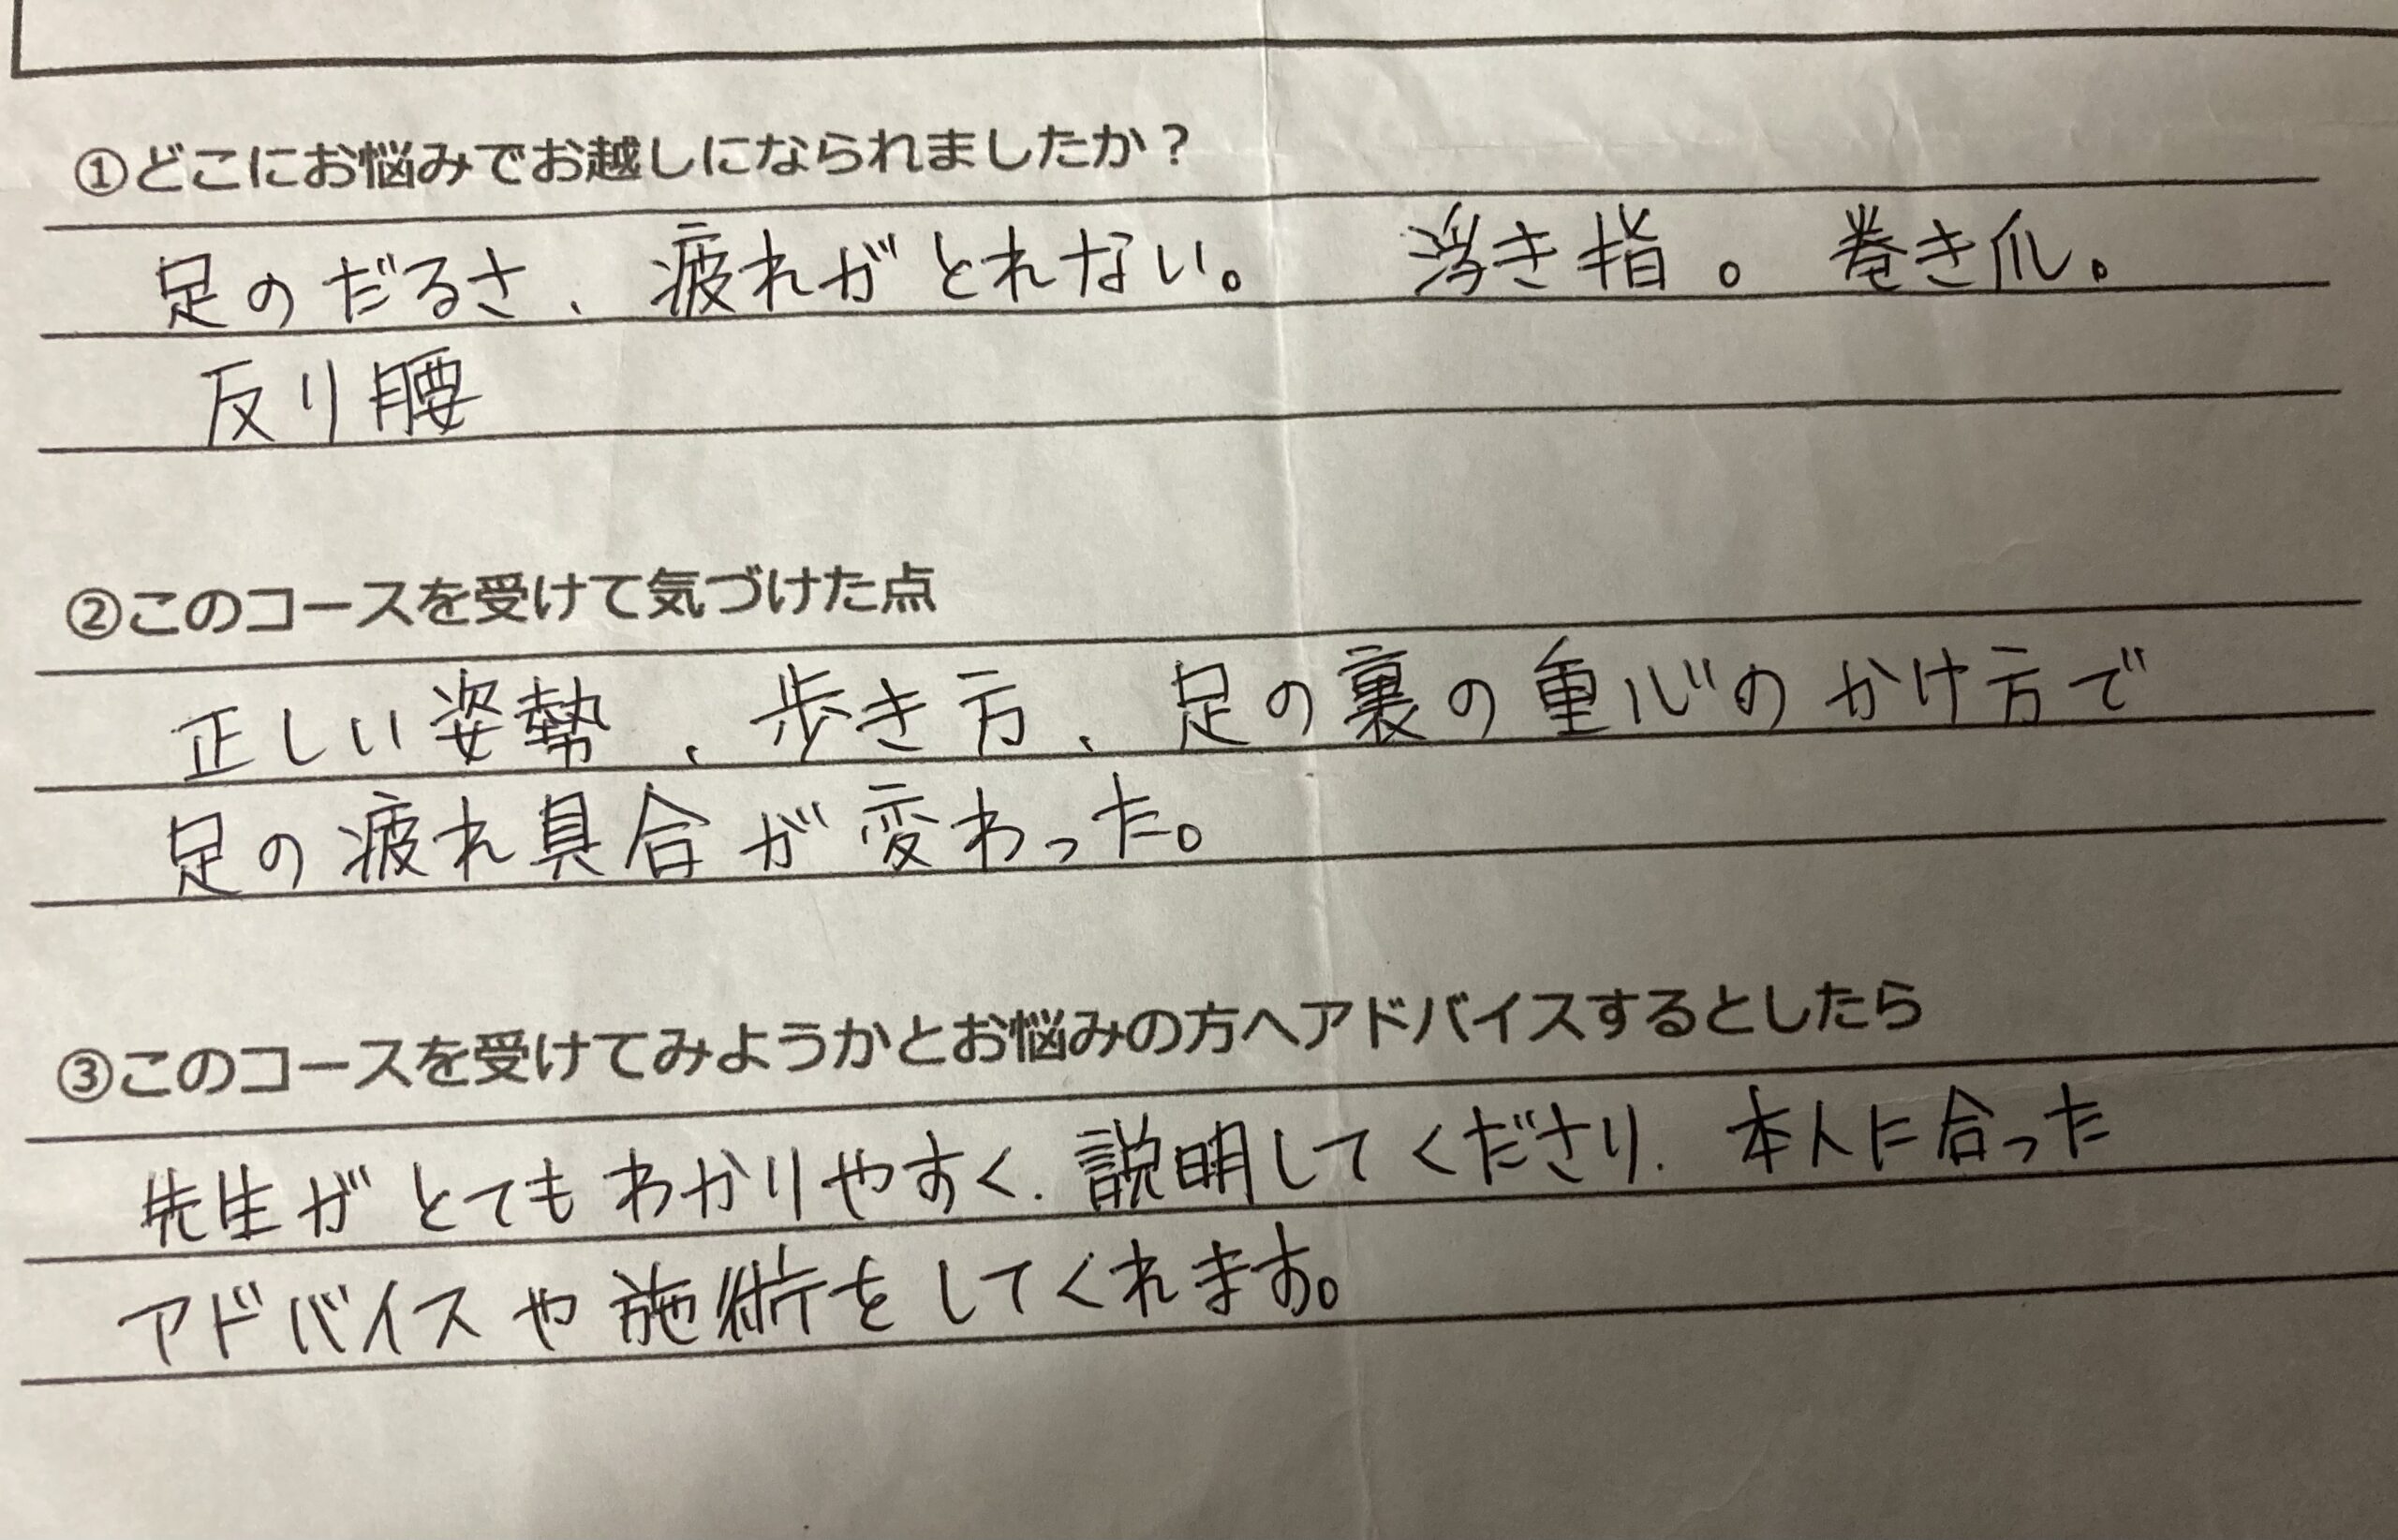 ①どこにお悩みでお越しになられましたか？
足のだるさ、疲れがとれない。 浮き指。巻き爪。
反り腰
②このコースを受けて気づけた点
正しい姿勢、歩き方、足の裏の重心のかけ方で
足の疲れ具合が変わった。
③このコースを受けてみようかとお悩みの方へアドバイスするとしたら
先生がとてもわかりやすく、説明してくださり、本人に合った
アドバイスや施術をしてくれます。